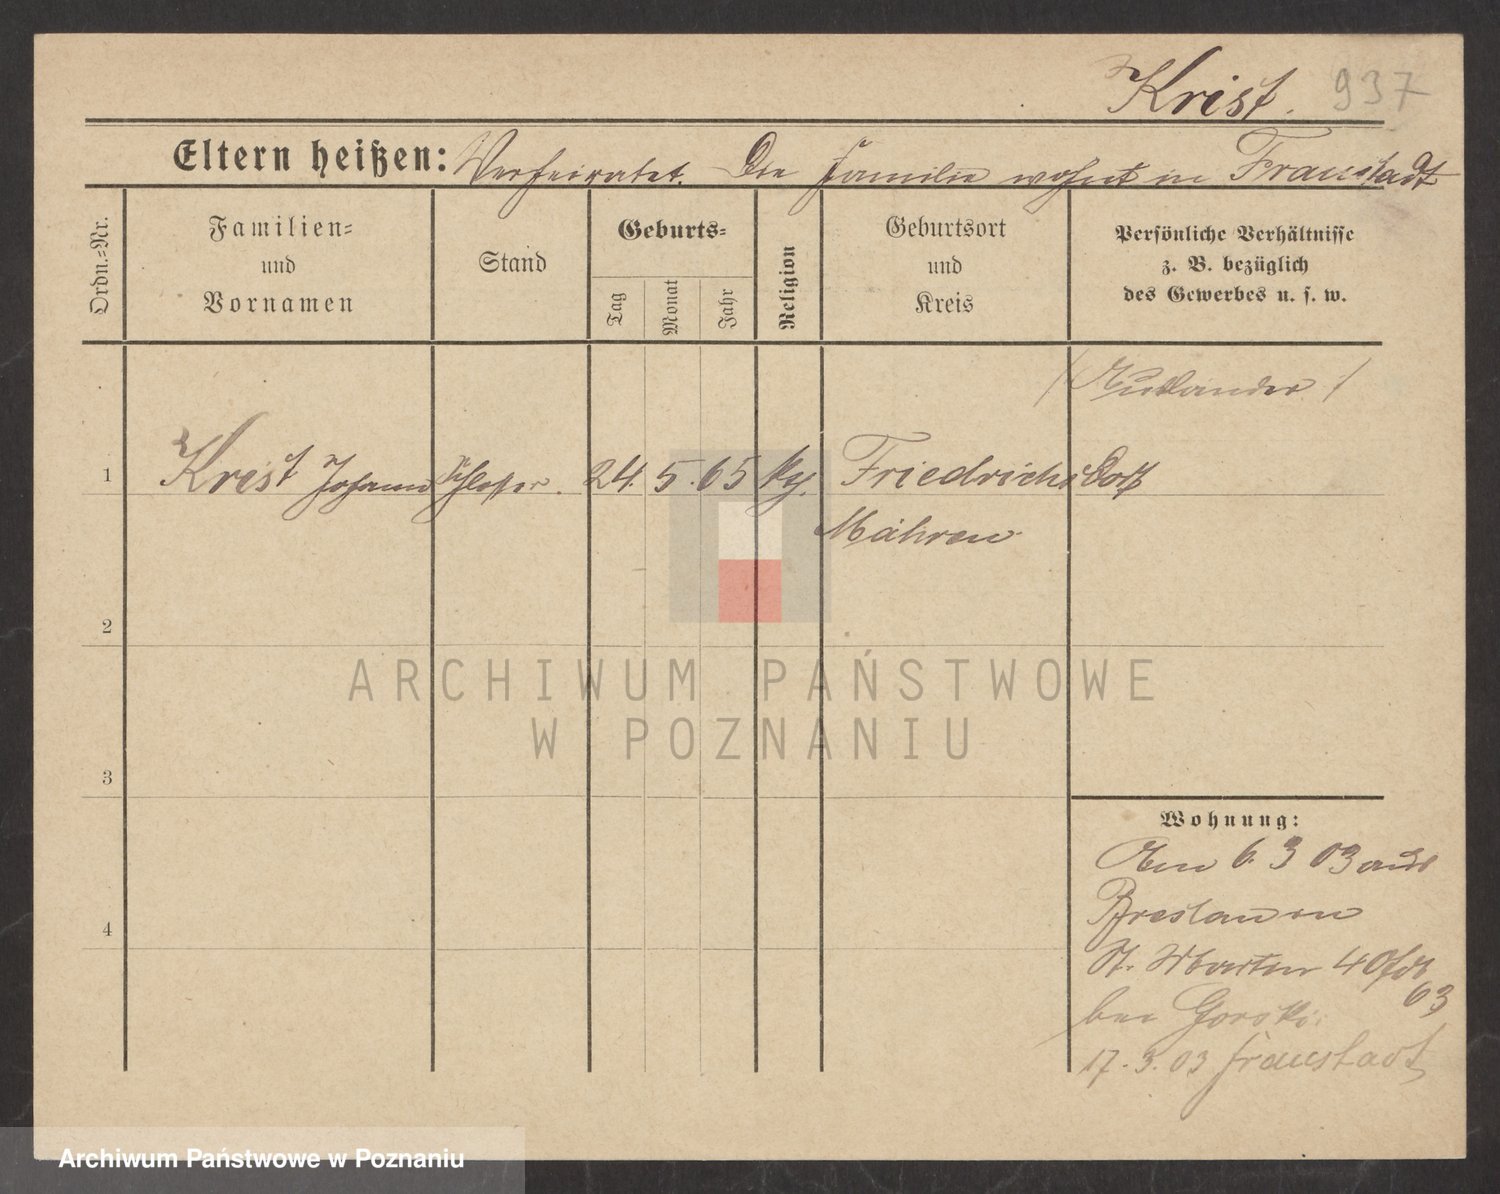 Krist. 937
Eltern heißen: Verheiratet. Die Familie wohnt in Fraustadt
Ordn.=Nr.
Familien=
und
Vornamen
Stand
Geburts=
Tag
Monat
Jahr
Religion
Geburtsort
und
Kreis
Persönliche Verhältnisse
z. B. bezüglich
des Gewerbes u. s. w.
/ Ausländer /
1 Krist Johann Schlosser. 24. 5. 65 kg. Friedrichsdorf
Mähren
2
3
4
ARCHIWUM PAŃSTWOWE
W POZNANIU
Wohnung:
Am 6. 3 03 aus
Breslau in
St. Martin 40
63
bei Gorski
17. 3. 03 Fraustadt
Archiwum Państwowe w Poznaniu